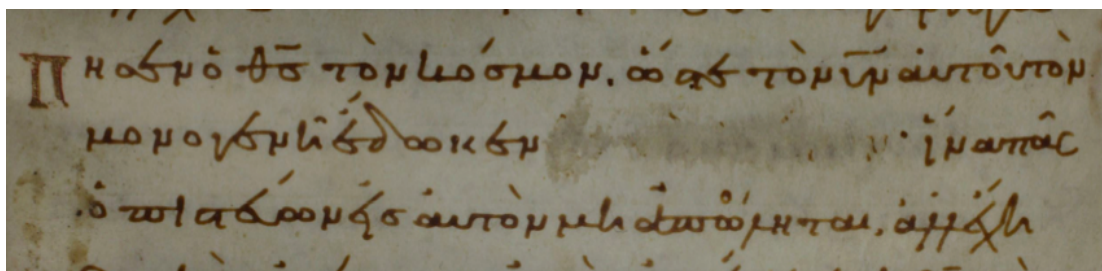 Πησεν ὁ θ̅ς̅ τὸν κόσμον. ὥστε τὸν υ̅ν̅ αὐτοῦ τὸν
μονογενῆ ἔδωκεν ἵνα πᾶς
ὁ πιστεύων εἰς αὐτὸν μὴ ἀπόληται. ἀλλ' ἔχη